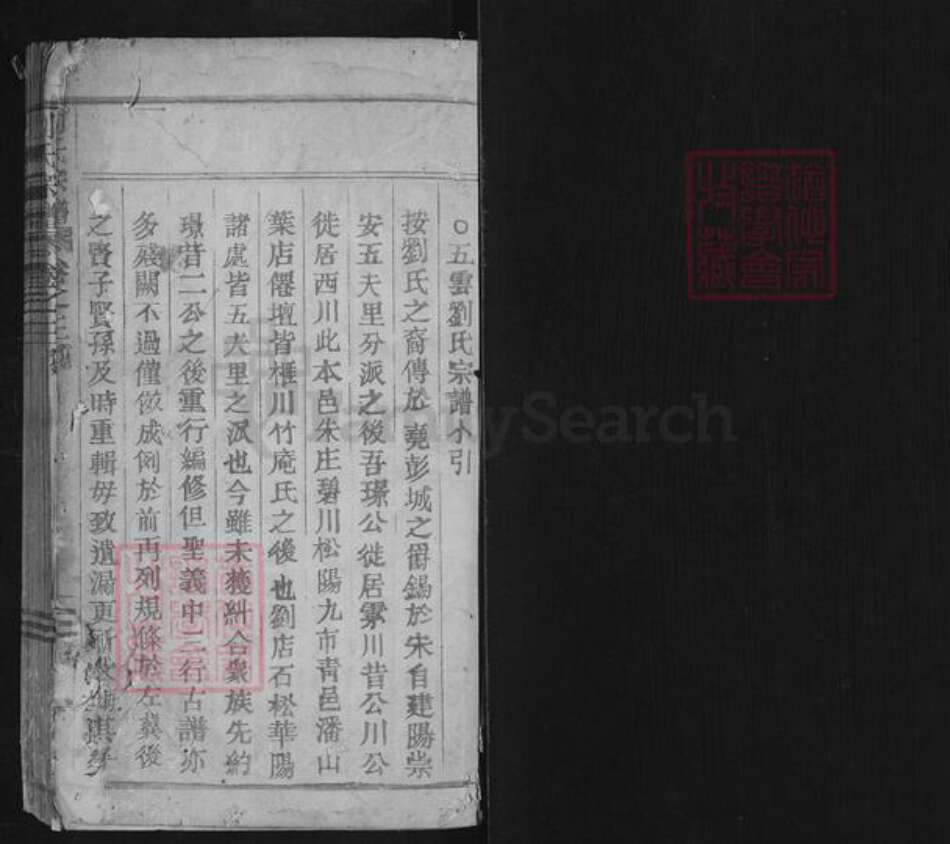 ○五雲劉氏宗譜小引
按劉氏之裔傳於堯彭城之爵錫於宋自建陽崇
安五夫里分派之後吾璟公徙居雲川昔公川公
徙居西川此本邑朱庄碧川松陽九市青邑潘山
葉店僊壇皆櫸川竹庵氏之後也劉店石松華陽
諸處皆五夫里之派也今雖未獲糾合衆族先約
璟昔二公之後重行編修但聖義中三行古譜亦
多殘闕不過僅倣成例於前再列規條於左冀後
之賢子賢孫及時重輯毋致遺漏更
FamilySearch